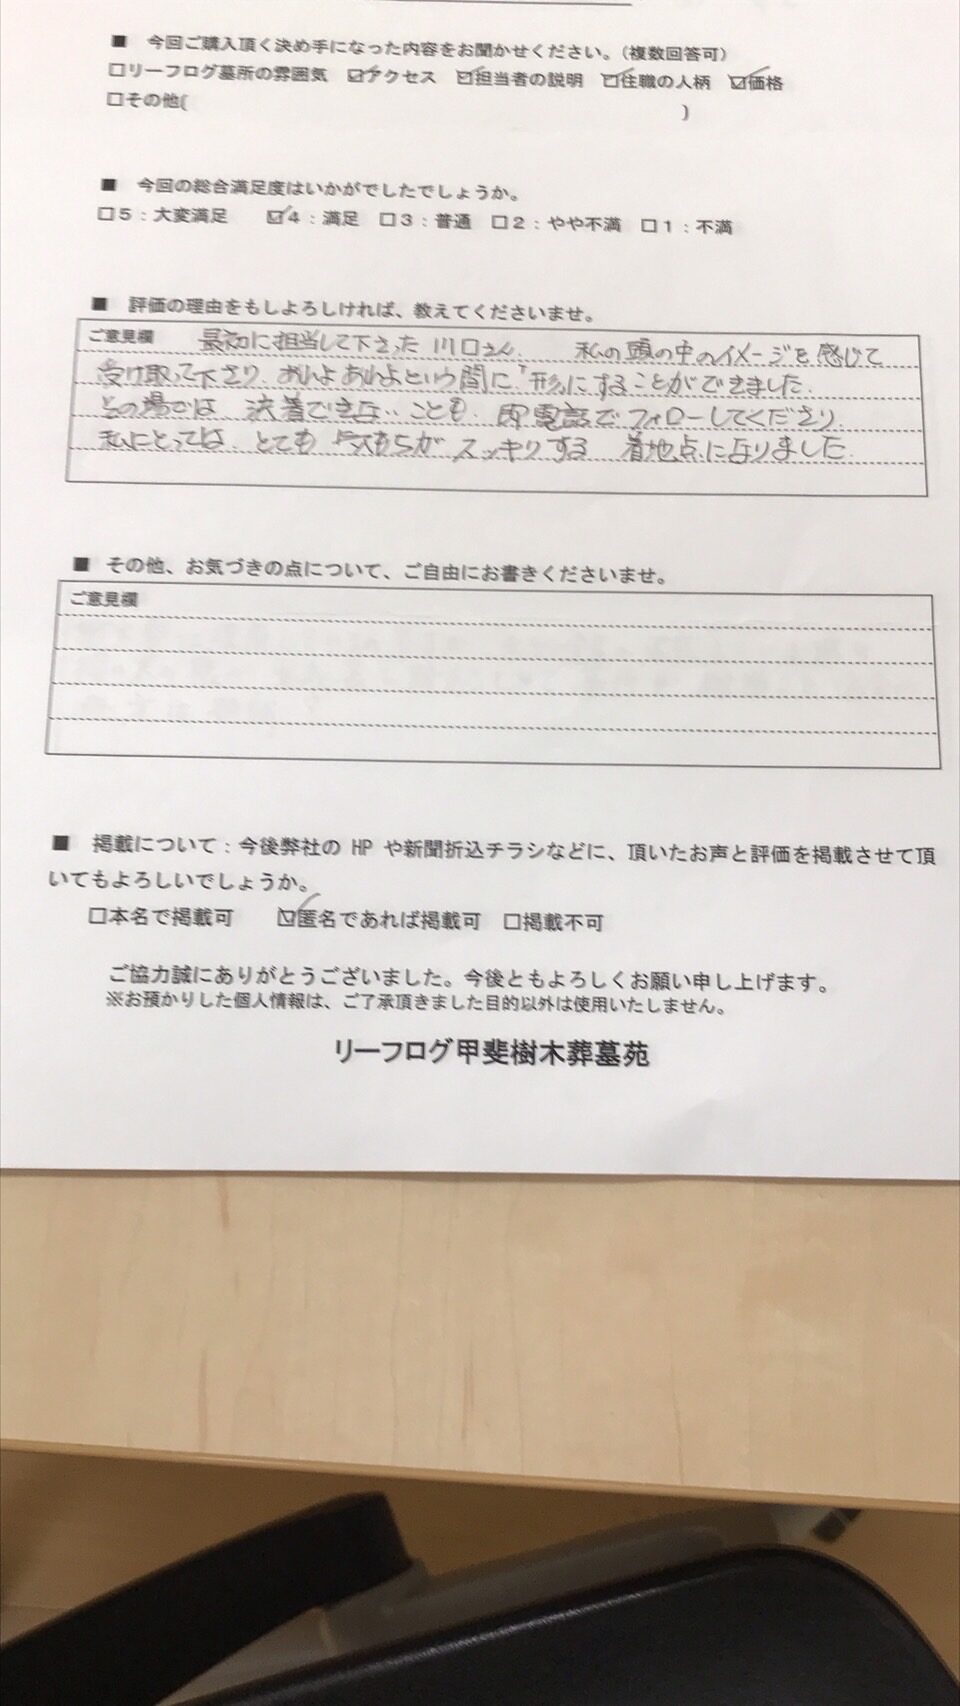 ■ 今回ご購入頂く決め手になった内容をお聞かせください。（複数回答可）
□リーフログ墓所の雰囲気 ☑アクセス ☑担当者の説明 ☑住職の人柄 ☑価格
□その他( )
■ 今回の総合満足度はいかがでしたでしょうか。
□５：大変満足 ☑４：満足 □３：普通 □２：やや不満 □１：不満
■ 評価の理由をもしよろしければ、教えてくださいませ。
ご意見欄 最初に担当して下さった川口さん、 私の頭の中のイメージを感じて
受け取って下さり、あれよあれよという間に、形にすることができました。
その場では 決着できないことも、即電話でフォローしてくださり、
私にとっては、とても 気もちが スッキリする 着地点になりました。
■ その他、お気づきの点について、ご自由にお書きくださいませ。
ご意見欄
■ 掲載について：今後弊社の HP や新聞折込チラシなどに、頂いたお声と評価を掲載させて頂
いてもよろしいでしょうか。
□本名で掲載可 ☑匿名であれば掲載可 □掲載不可
ご協力誠にありがとうございました。今後ともよろしくお願い申し上げます。
※お預かりした個人情報は、ご了承頂きました目的以外は使用いたしません。
リーフログ甲斐樹木葬墓苑